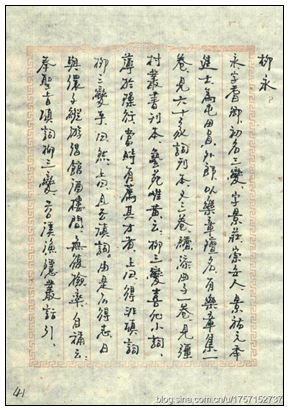 柳永
永字耆卿，初名三變，字景莊，崇安人。景祐元年
進士，為屯田員外郎。以樂章擅名，有樂章集一
卷，見六十家詞刊本。又三卷，續添曲子一卷，見彊
村叢書刊本。藝苑雌黃云：柳三變喜作小詞，
薄於操行，當時有薦其才者，上曰得非填詞
柳三變乎？曰然。上曰且去填詞。由是不得志，日
與儇子縱游娼館酒樓間，無復檢率，自稱云：
奉聖旨填詞柳三變。苕溪漁隱叢話引。
41
blog.sina.com.cn/u/1757152737